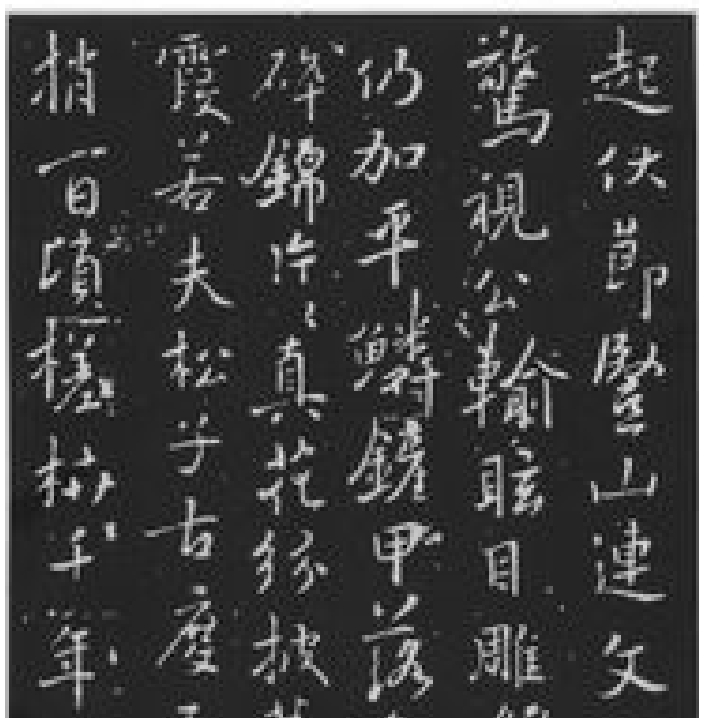 起伏節豎山連文
驚視公輸眩目雕
仍加平鱗鏟甲落
碎錦片〻真花紛披
霞若夫松子古度
梢百頃槎枿千年